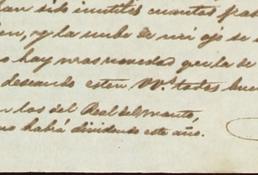 han sido inutiles cuantas
en, y la nube de mi ojo se
o hay mas novedad que la de
deseando esten V.s todos bue
n los del Real del Monte,
no habrá dividendo este año.